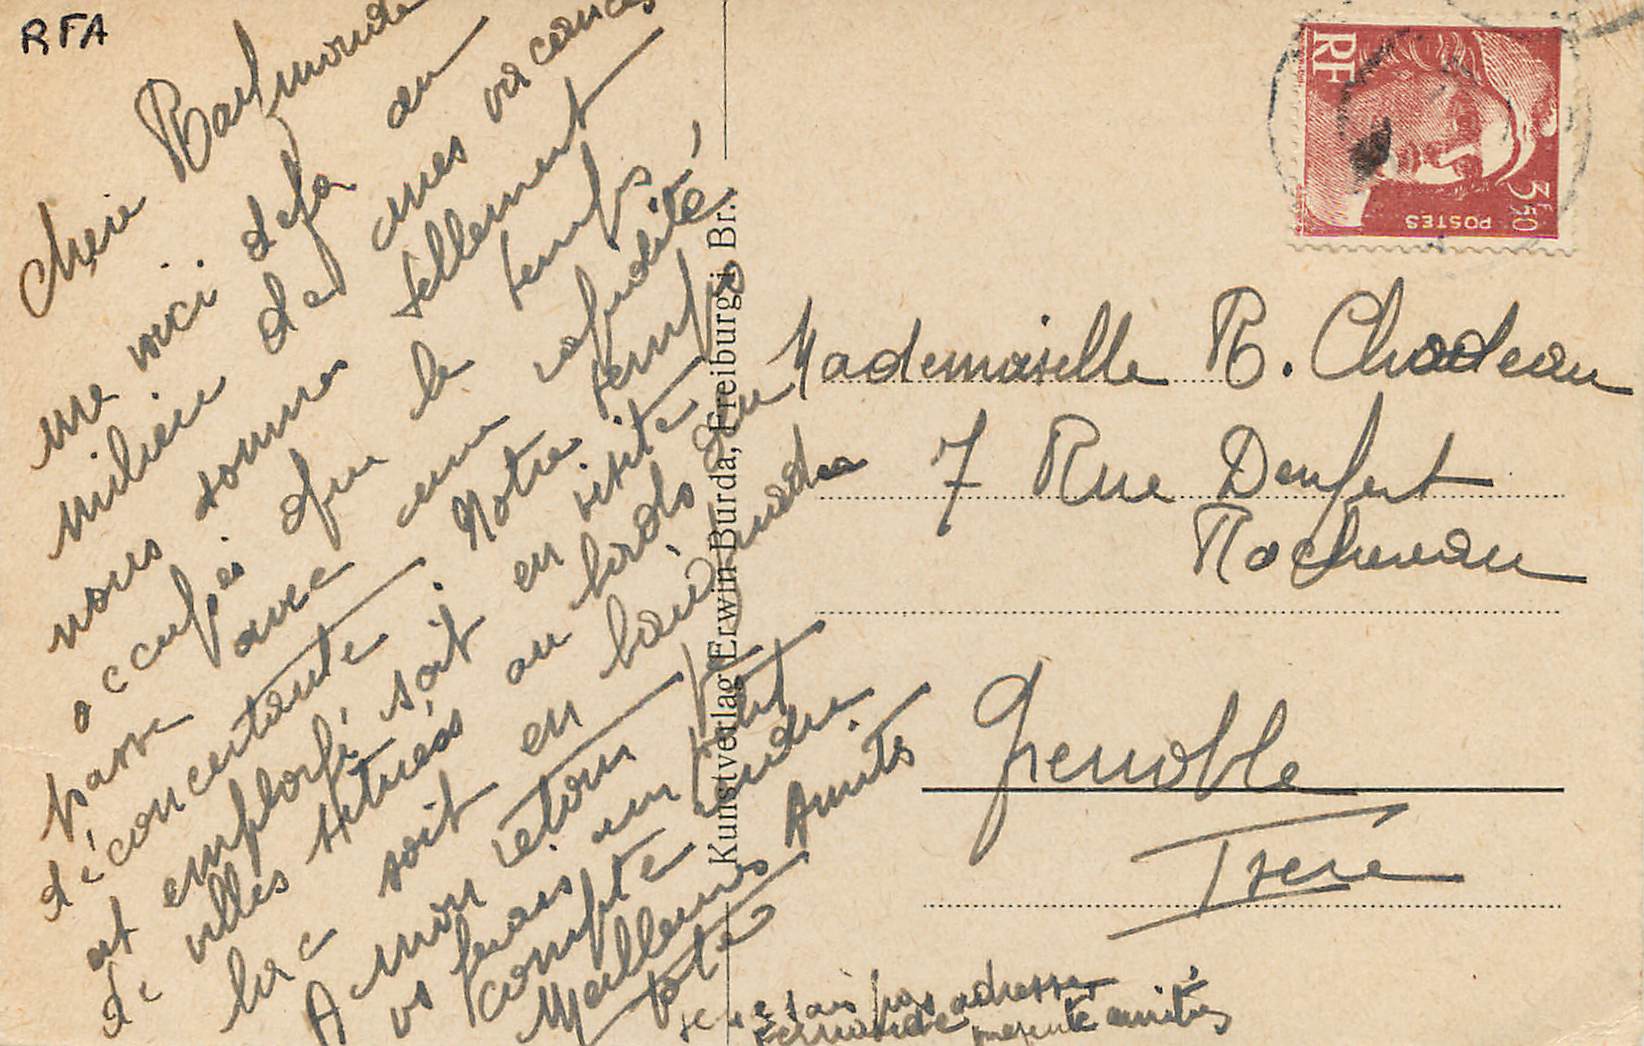 RFA
Chère Raymonde
me voici déjà au
milieu de mes vacances
nous sommes tellement
occupés que le temps
passe avec une rapidité
déconcertante. Notre temps
est employé soit en visite
de villes situées au bords du
lac soit en baignade
A mon retour je
vs ferais un petit
compte rendu.
Meilleures Amitiés
Kunstverlag Erwin Burda, Freiburg i. Br.
RF
POSTES
3F50
Mademoiselle R. Chadeau
7 Rue Denfert
Rochereau
Grenoble
Isere
je ne sais pas adresse
Fernande amitiés